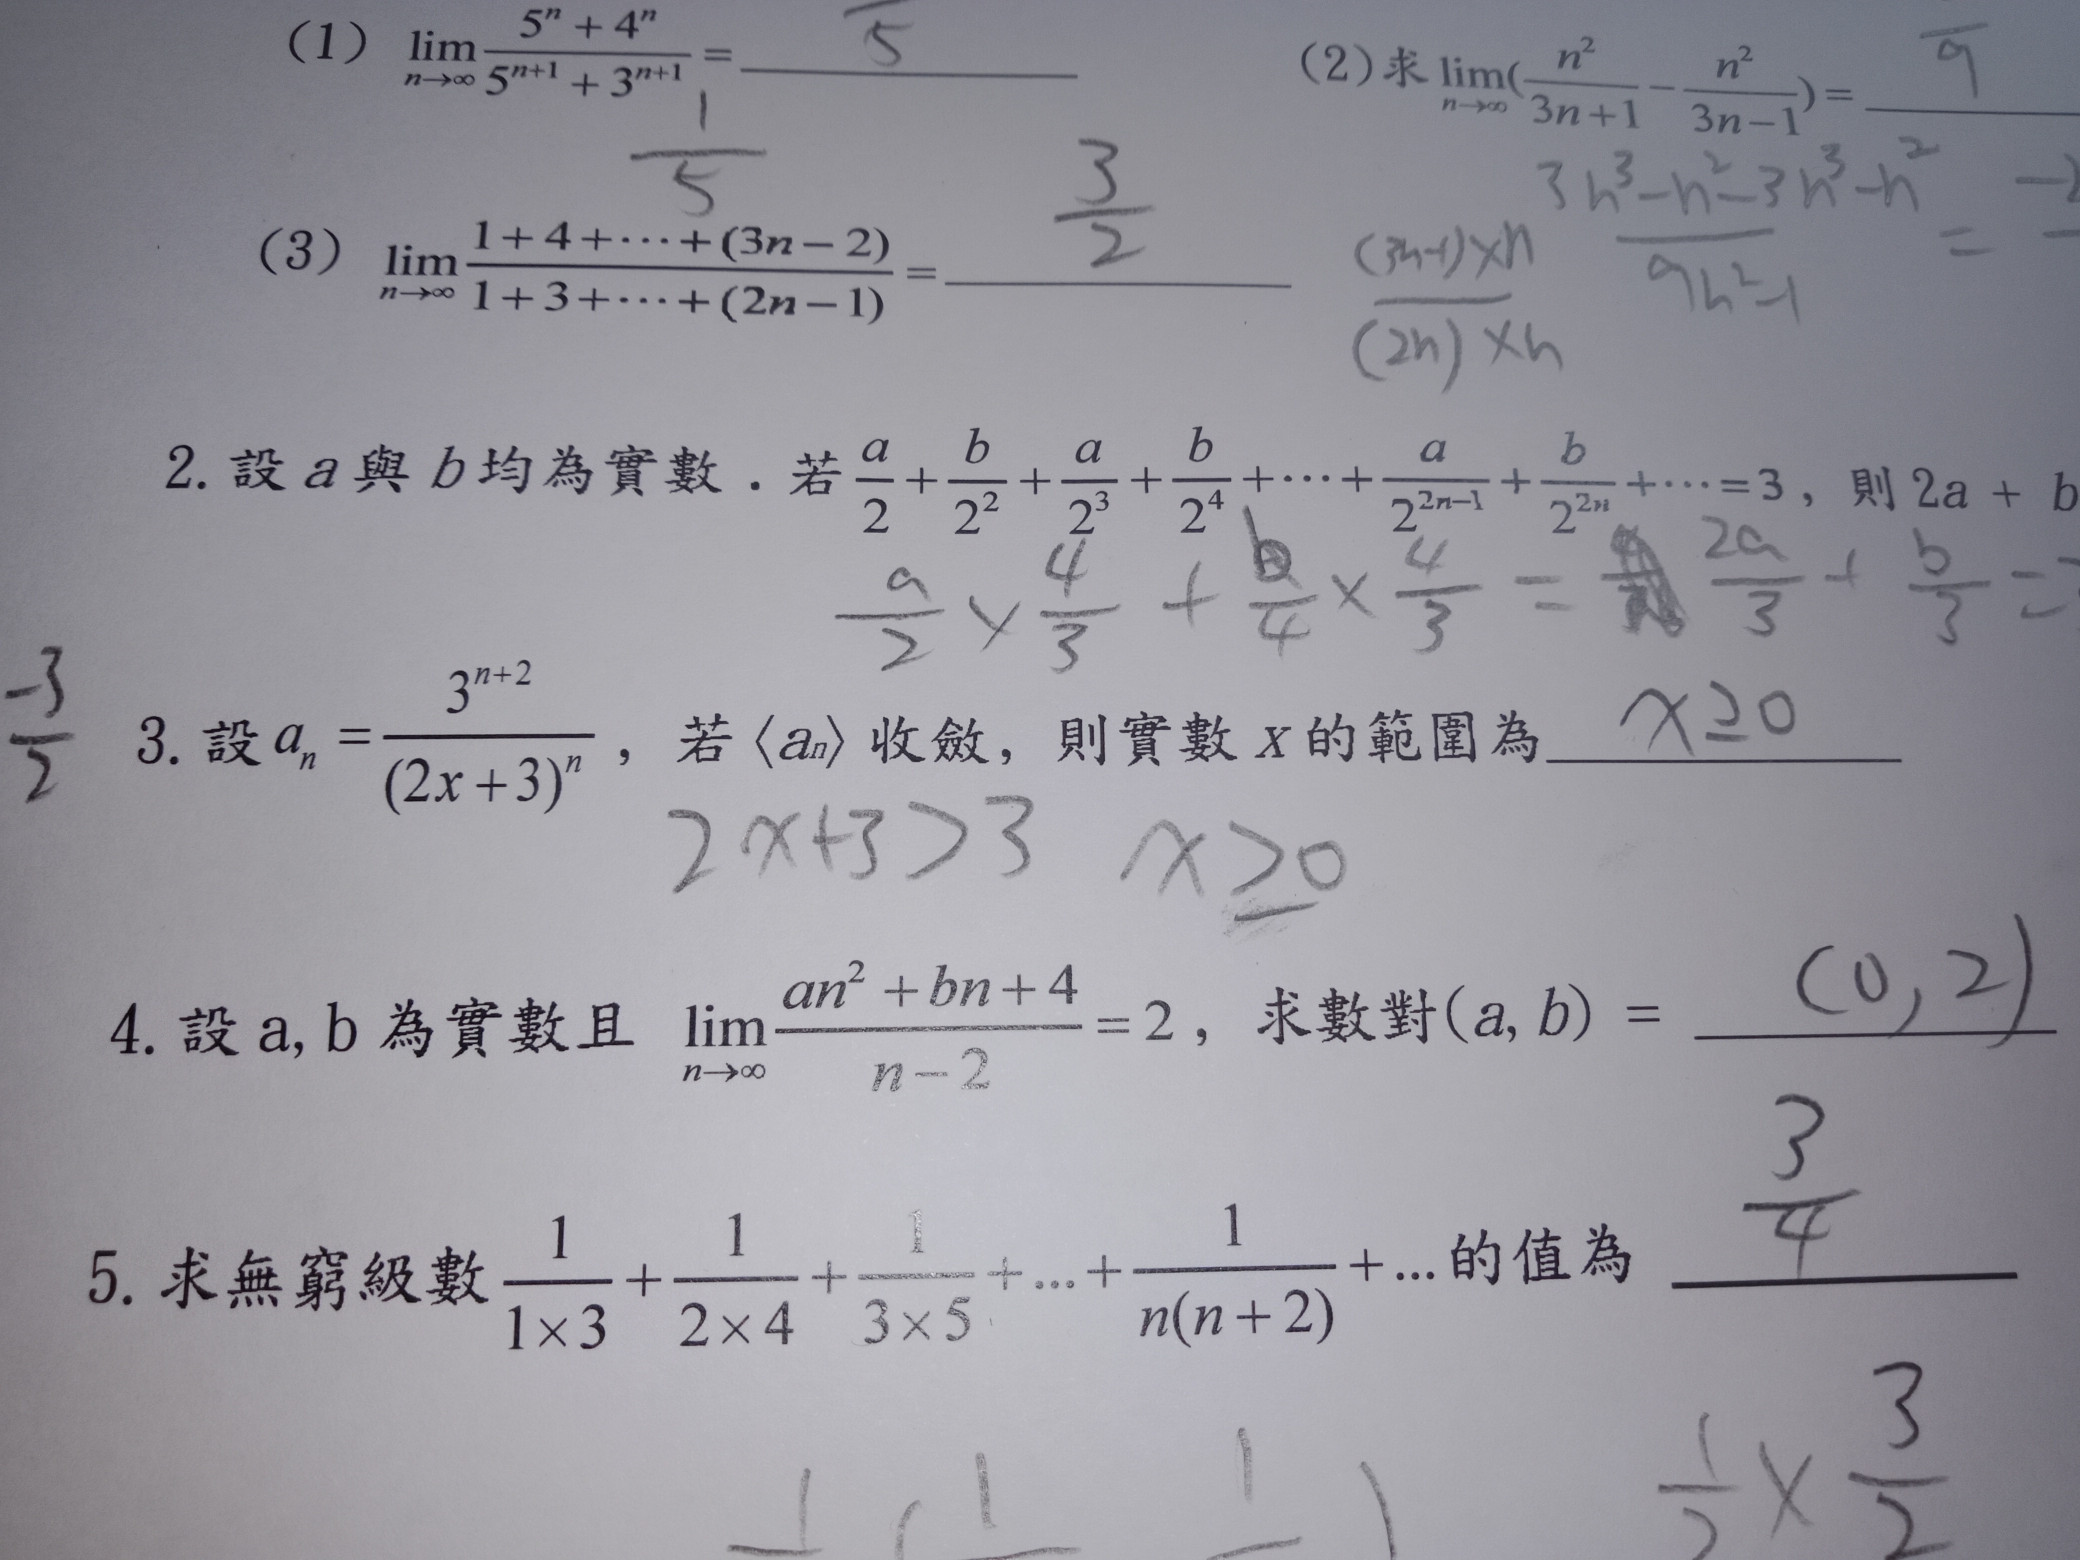 (1) lim n→∞ (5^n + 4^n)/(5^(n+1) + 3^(n+1)) = 5
(2)求 lim n→∞ (n²/(3n+1) − n²/(3n−1)) = 9
1/5
3n³−n²−3n³−n² / 9n²−1 = −
(3) lim n→∞ (1+4+⋯+(3n−2))/(1+3+⋯+(2n−1)) = 3/2
(3n-1)×n / (2n)×n
2. 設 a 與 b 均為實數．若 a/2 + b/2² + a/2³ + b/2⁴ + ⋯ + a/2^(2n−1) + b/2^(2n) + ⋯ = 3，則 2a + b
a/2 × 4/3 + b/4 × 4/3 = 2a/3 + b/3 =
-3/2
3. 設 aₙ = 3^(n+2)/(2x+3)^n，若⟨an⟩收斂，則實數 x 的範圍為 x≥0
2x+3>3 x≥0
4. 設 a, b 為實數且 lim n→∞ (an² + bn + 4)/(n−2) = 2，求數對(a, b) = (0,2)
5. 求無窮級數 1/(1×3) + 1/(2×4) + 1/(3×5) + ... + 1/(n(n+2)) + ... 的值為 3/4
1/2 × 3/2
1 ( 1 1 )